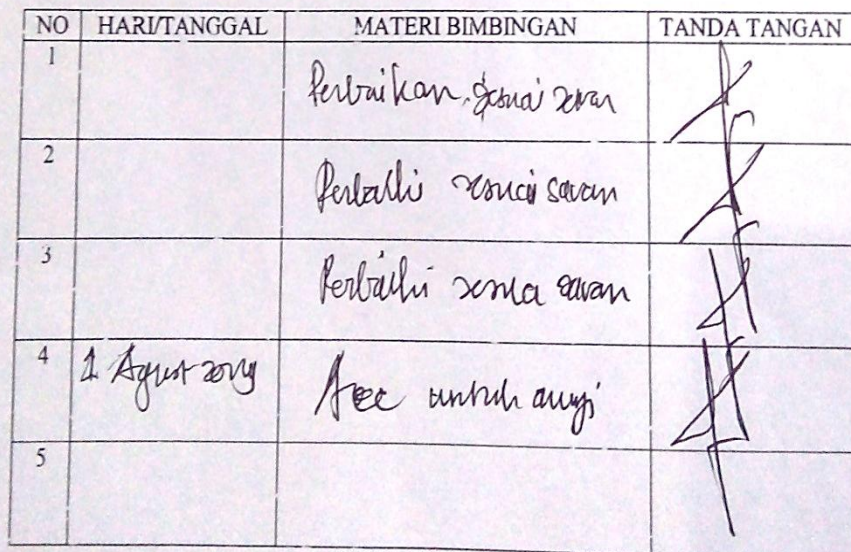 NO HARI/TANGGAL MATERI BIMBINGAN TANDA TANGAN
1 Perbaikan sesuai saran
2 Perbaiki sesuai saran
3 Perbaiki sesuai saran
4 1 Agust Acc untuk diuji
5